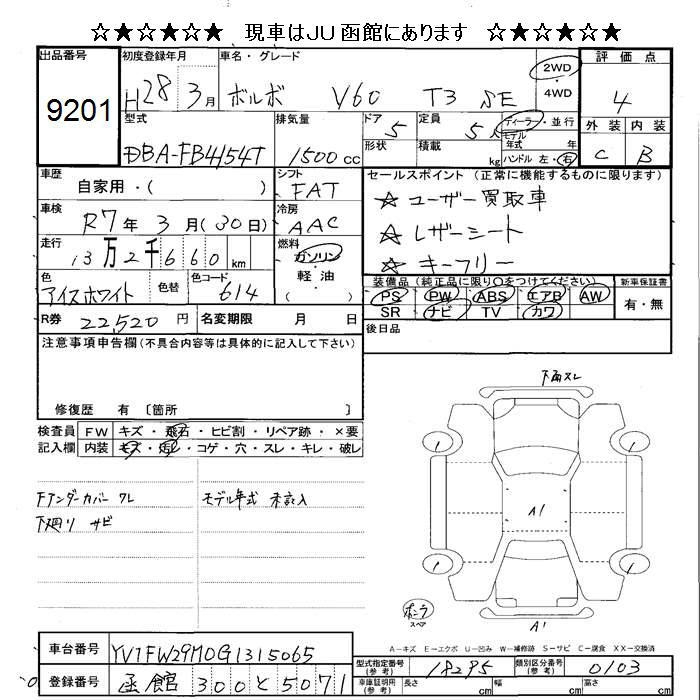 ☆★☆★☆★ 現車はJU函館にあります ☆★☆★☆★
出品番号 初度登録年月 車名・グレード 評価点
9201 H28 3月 ボルボ V60 T3 SE 2WD・4WD 4
型式 排気量 ドア 5 定員 5人 ディーラー・並行 外装 内装
DBA-FB4154T 1500cc 形状 積載 kg モデル年式 年式 ハンドル 左・右 C B
車歴 自家用・( ) シフト FAT セールスポイント (正常に機能するものに限ります)
車検 R7年 3月(30日) 冷房 AAC ☆ユーザー買取車
走行 13万2千660km 燃料 ガソリン・軽油 ( ) ☆レザーシート
☆キーフリー
色 アイスホワイト 色替 色コード 614 装備品(純正品に限り○をつけてください) 新車保証書
PS PW ABS エアB AW 有・無
SR ナビ TV カワ
R券 22,520円 名変期限 月 日 後日品
注意事項申告欄(不具合内容等は具体的に記入して下さい)
修復歴 有 〔箇所 〕
検査員記入欄 FW キズ・飛石・ヒビ割・リペア跡・×要
内装 キズ・汚レ・コゲ・穴・スレ・キレ・破レ
下廻スレ
Fアンダーカバー ワレ モデル年式 未記入
下廻り サビ
A1
ホンラ スペア
A1
A-キズ E-エクボ U-凹み W-補修跡 S-サビ C-腐食 XX-交換済
車台番号 YV1FW29M0G1315065
型式指定番号(参考) 18295 類別区分番号(参考) 0103
登録番号 函館 300 と 5071
車庫証明用(参考) 長さ cm 幅 cm 高さ cm